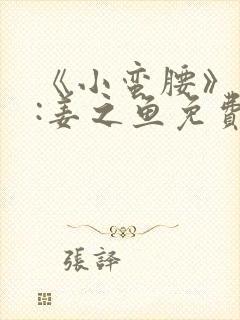 《小蛮腰》
:姜之鱼免費
張譯